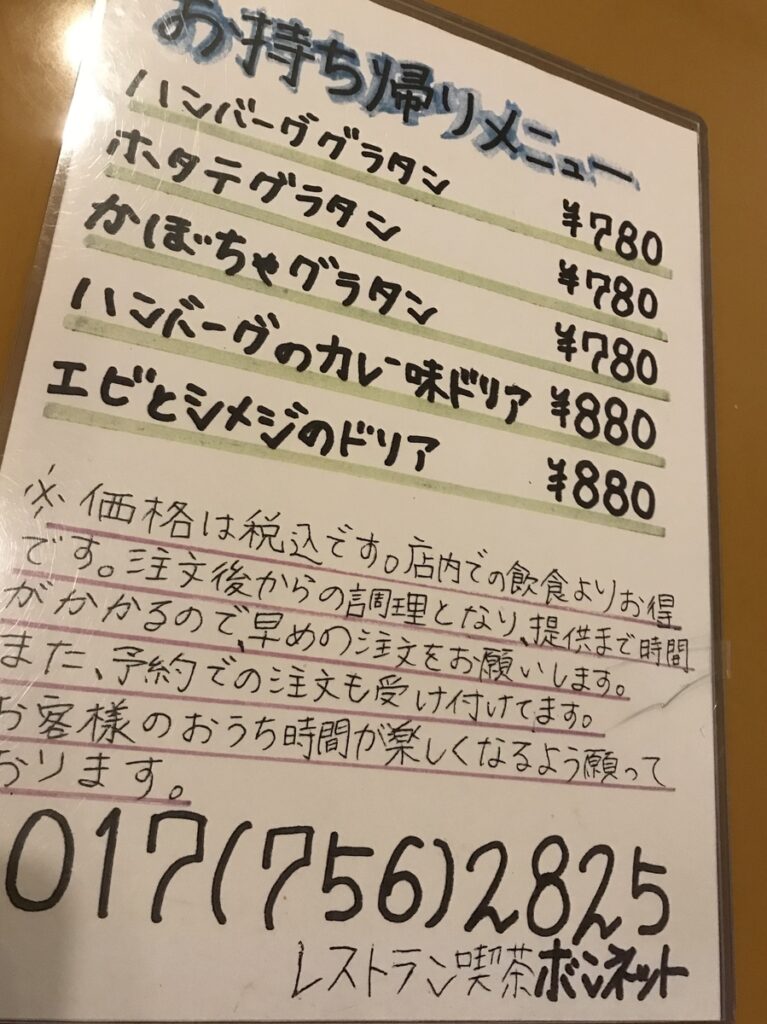 お持ち帰りメニュー
ハンバーググラタン ¥780
ホタテグラタン ¥780
かぼちゃグラタン ¥780
ハンバーグのカレー味ドリア ¥880
エビとシメジのドリア ¥880
※価格は税込です。店内での飲食よりお得
です。注文後からの調理となり、提供まで時間
がかかるので、早めの注文をお願いします。
また、予約での注文も受け付けてます。
お客様のおうち時間が楽しくなるよう願って
おります。
017(756)2825
レストラン喫茶ボンネット